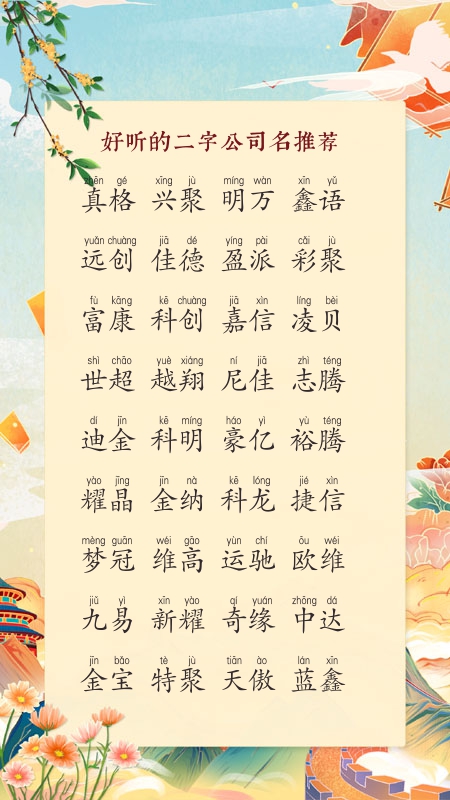 好听的二字公司名推荐
zhēn gé xīng jù míng wàn xīn yǔ
真格 兴聚 明万 鑫语
yuǎn chuàng jiā dé yíng pài cǎi jù
远创 佳德 盈派 彩聚
fù kāng kē chuàng jiā xìn líng bèi
富康 科创 嘉信 凌贝
shì chāo yuè xiáng ní jiā zhì téng
世超 越翔 尼佳 志腾
dí jīn kē míng háo yì yù téng
迪金 科明 豪亿 裕腾
yào jīng jīn nà kē lóng jié xìn
耀晶 金纳 科龙 捷信
mèng guān wéi gāo yùn chí ōu wéi
梦冠 维高 运驰 欧维
jiǔ yì xīn yào qí yuán zhōng dá
九易 新耀 奇缘 中达
jīn bǎo tè jù tiān ào lán xīn
金宝 特聚 天傲 蓝鑫